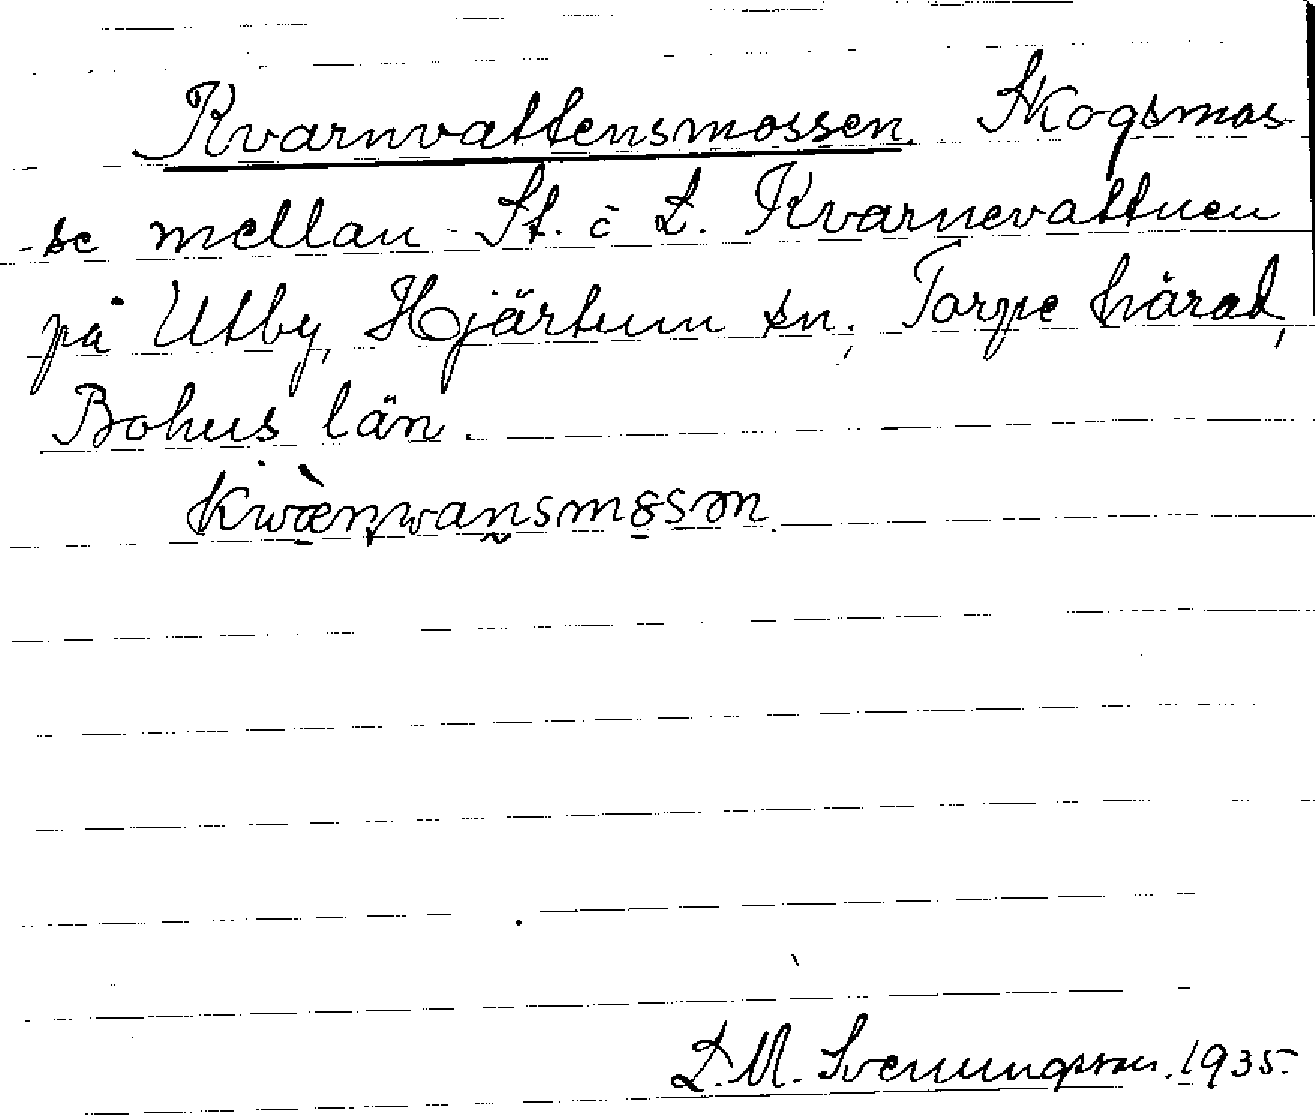 Kvarnvattensmossen. Skogsmos
-se mellan St. o L. Kvarnevattnen
på Utby, Hjärtum sn; Torpe härad,
Bohus län.
L.M. Svenungsson. 1935.